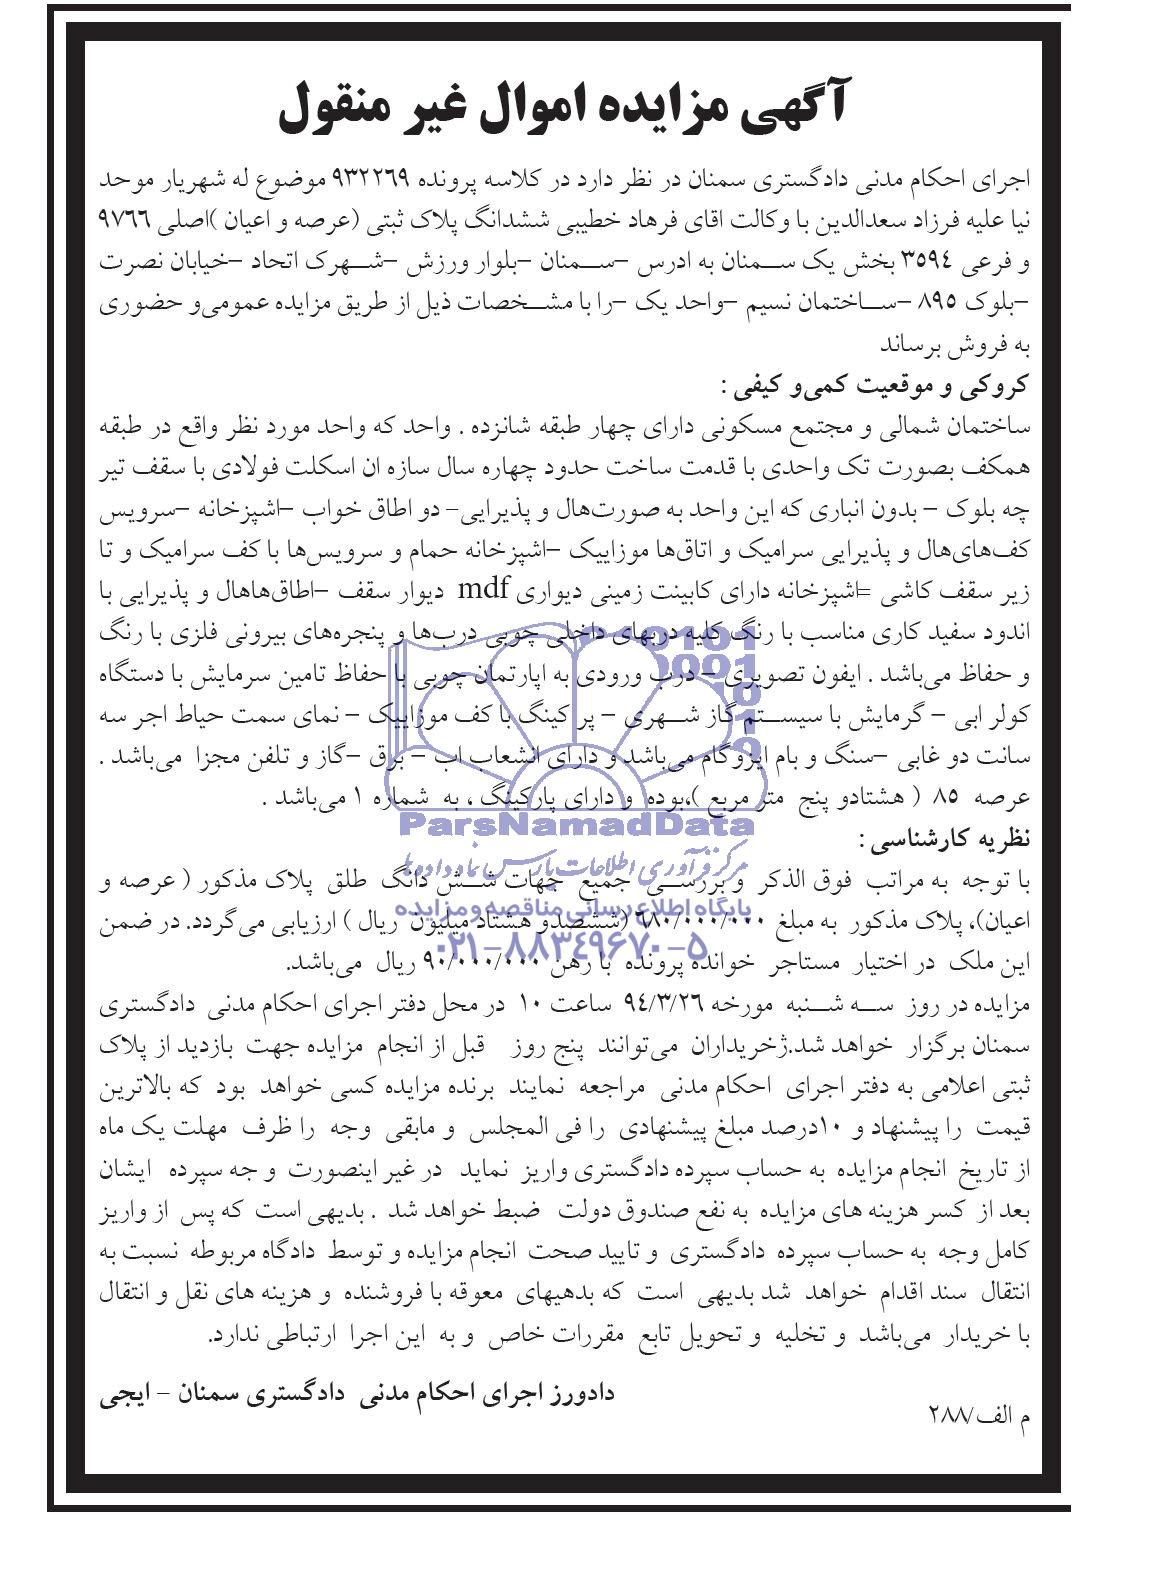 آگهی مزایده اموال غیر منقول
اجرای احکام مدنی دادگستری سمنان در نظر دارد در کلاسه پرونده ۹۳۲۲٦۹ موضوع له شهریار موحد
نیا علیه فرزاد سعدالدین با وکالت اقای فرهاد خطیبی ششدانگ پلاک ثبتی (عرصه و اعیان )اصلی ۹۷٦٦
و فرعی ۳٥۹٤ بخش یک سمنان به ادرس –سمنان –بلوار ورزش –شهرک اتحاد –خیابان نصرت
–بلوک ۸۹٥ –ساختمان نسیم –واحد یک –را با مشخصات ذیل از طریق مزایده عمومی‌و حضوری
به فروش برساند
کروکی و موقعیت کمی‌و کیفی :
ساختمان شمالی و مجتمع مسکونی دارای چهار طبقه شانزده . واحد که واحد مورد نظر واقع در طبقه
همکف بصورت تک واحدی با قدمت ساخت حدود چهاره سال سازه ان اسکلت فولادی با سقف تیر
چه بلوک – بدون انباری که این واحد به صورت‌هال و پذیرایی– دو اطاق خواب –اشپزخانه –سرویس
کف‌های‌هال و پذیرایی سرامیک و اتاق‌ها موزاییک –اشپزخانه حمام و سرویس‌ها با کف سرامیک و تا
زیر سقف کاشی =اشپزخانه دارای کابینت زمینی دیواری mdf دیوار سقف –اطاق‌هاهال و پذیرایی با
اندود سفید کاری مناسب با رنگ کلیه دربهای داخلی چوبی درب‌ها و پنجره‌های بیرونی فلزی با رنگ
و حفاظ می‌باشد . ایفون تصویری – درب ورودی به اپارتمان چوبی با حفاظ تامین سرمایش با دستگاه
کولر ابی – گرمایش با سیستم گاز شهری – پرکینگ با کف موزاییک – نمای سمت حیاط اجر سه
سانت دو غابی –سنگ و بام ایزوگام می‌باشد و دارای انشعاب اب – برق –گاز و تلفن مجزا می‌باشد .
عرصه ۸٥ ( هشتادو پنج متر مربع )،بوده و دارای پارکینگ ، به شماره ۱ می‌باشد .
ParsNamadData
نظریه کارشناسی :
مرکز فرآوری اطلاعات پارس نماد داده ها
با توجه به مراتب فوق الذکر و بررسی جمیع جهات شش دانگ طلق پلاک مذکور ( عرصه و
پایگاه اطلاع رسانی مناقصه و مزایده
اعیان)، پلاک مذکور به مبلغ ٦۸۰/۰۰۰/۰۰۰ (ششصدو هشتاد میلیون ریال ) ارزیابی می‌گردد. در ضمن
۰۲۱-۸۸۳٤۹٦۷۰-٥
این ملک در اختیار مستاجر خوانده پرونده با رهن ۹۰/۰۰۰/۰۰۰ ریال می‌باشد.
مزایده در روز سه شنبه مورخه ۹٤/۳/۲٦ ساعت ۱۰ در محل دفتر اجرای احکام مدنی دادگستری
سمنان برگزار خواهد شد.ژخریداران می‌توانند پنج روز قبل از انجام مزایده جهت بازدید از پلاک
ثبتی اعلامی به دفتر اجرای احکام مدنی مراجعه نمایند برنده مزایده کسی خواهد بود که بالاترین
قیمت را پیشنهاد و ۱۰درصد مبلغ پیشنهادی را فی المجلس و مابقی وجه را ظرف مهلت یک ماه
از تاریخ انجام مزایده به حساب سپرده دادگستری واریز نماید در غیر اینصورت و جه سپرده ایشان
بعد از کسر هزینه های مزایده به نفع صندوق دولت ضبط خواهد شد . بدیهی است که پس از واریز
کامل وجه به حساب سپرده دادگستری و تایید صحت انجام مزایده و توسط دادگاه مربوطه نسبت به
انتقال سند اقدام خواهد شد بدیهی است که بدهیهای معوقه با فروشنده و هزینه های نقل و انتقال
با خریدار می‌باشد و تخلیه و تحویل تابع مقررات خاص و به این اجرا ارتباطی ندارد.
دادورز اجرای احکام مدنی دادگستری سمنان – ایجی
م الف/۲۸۸